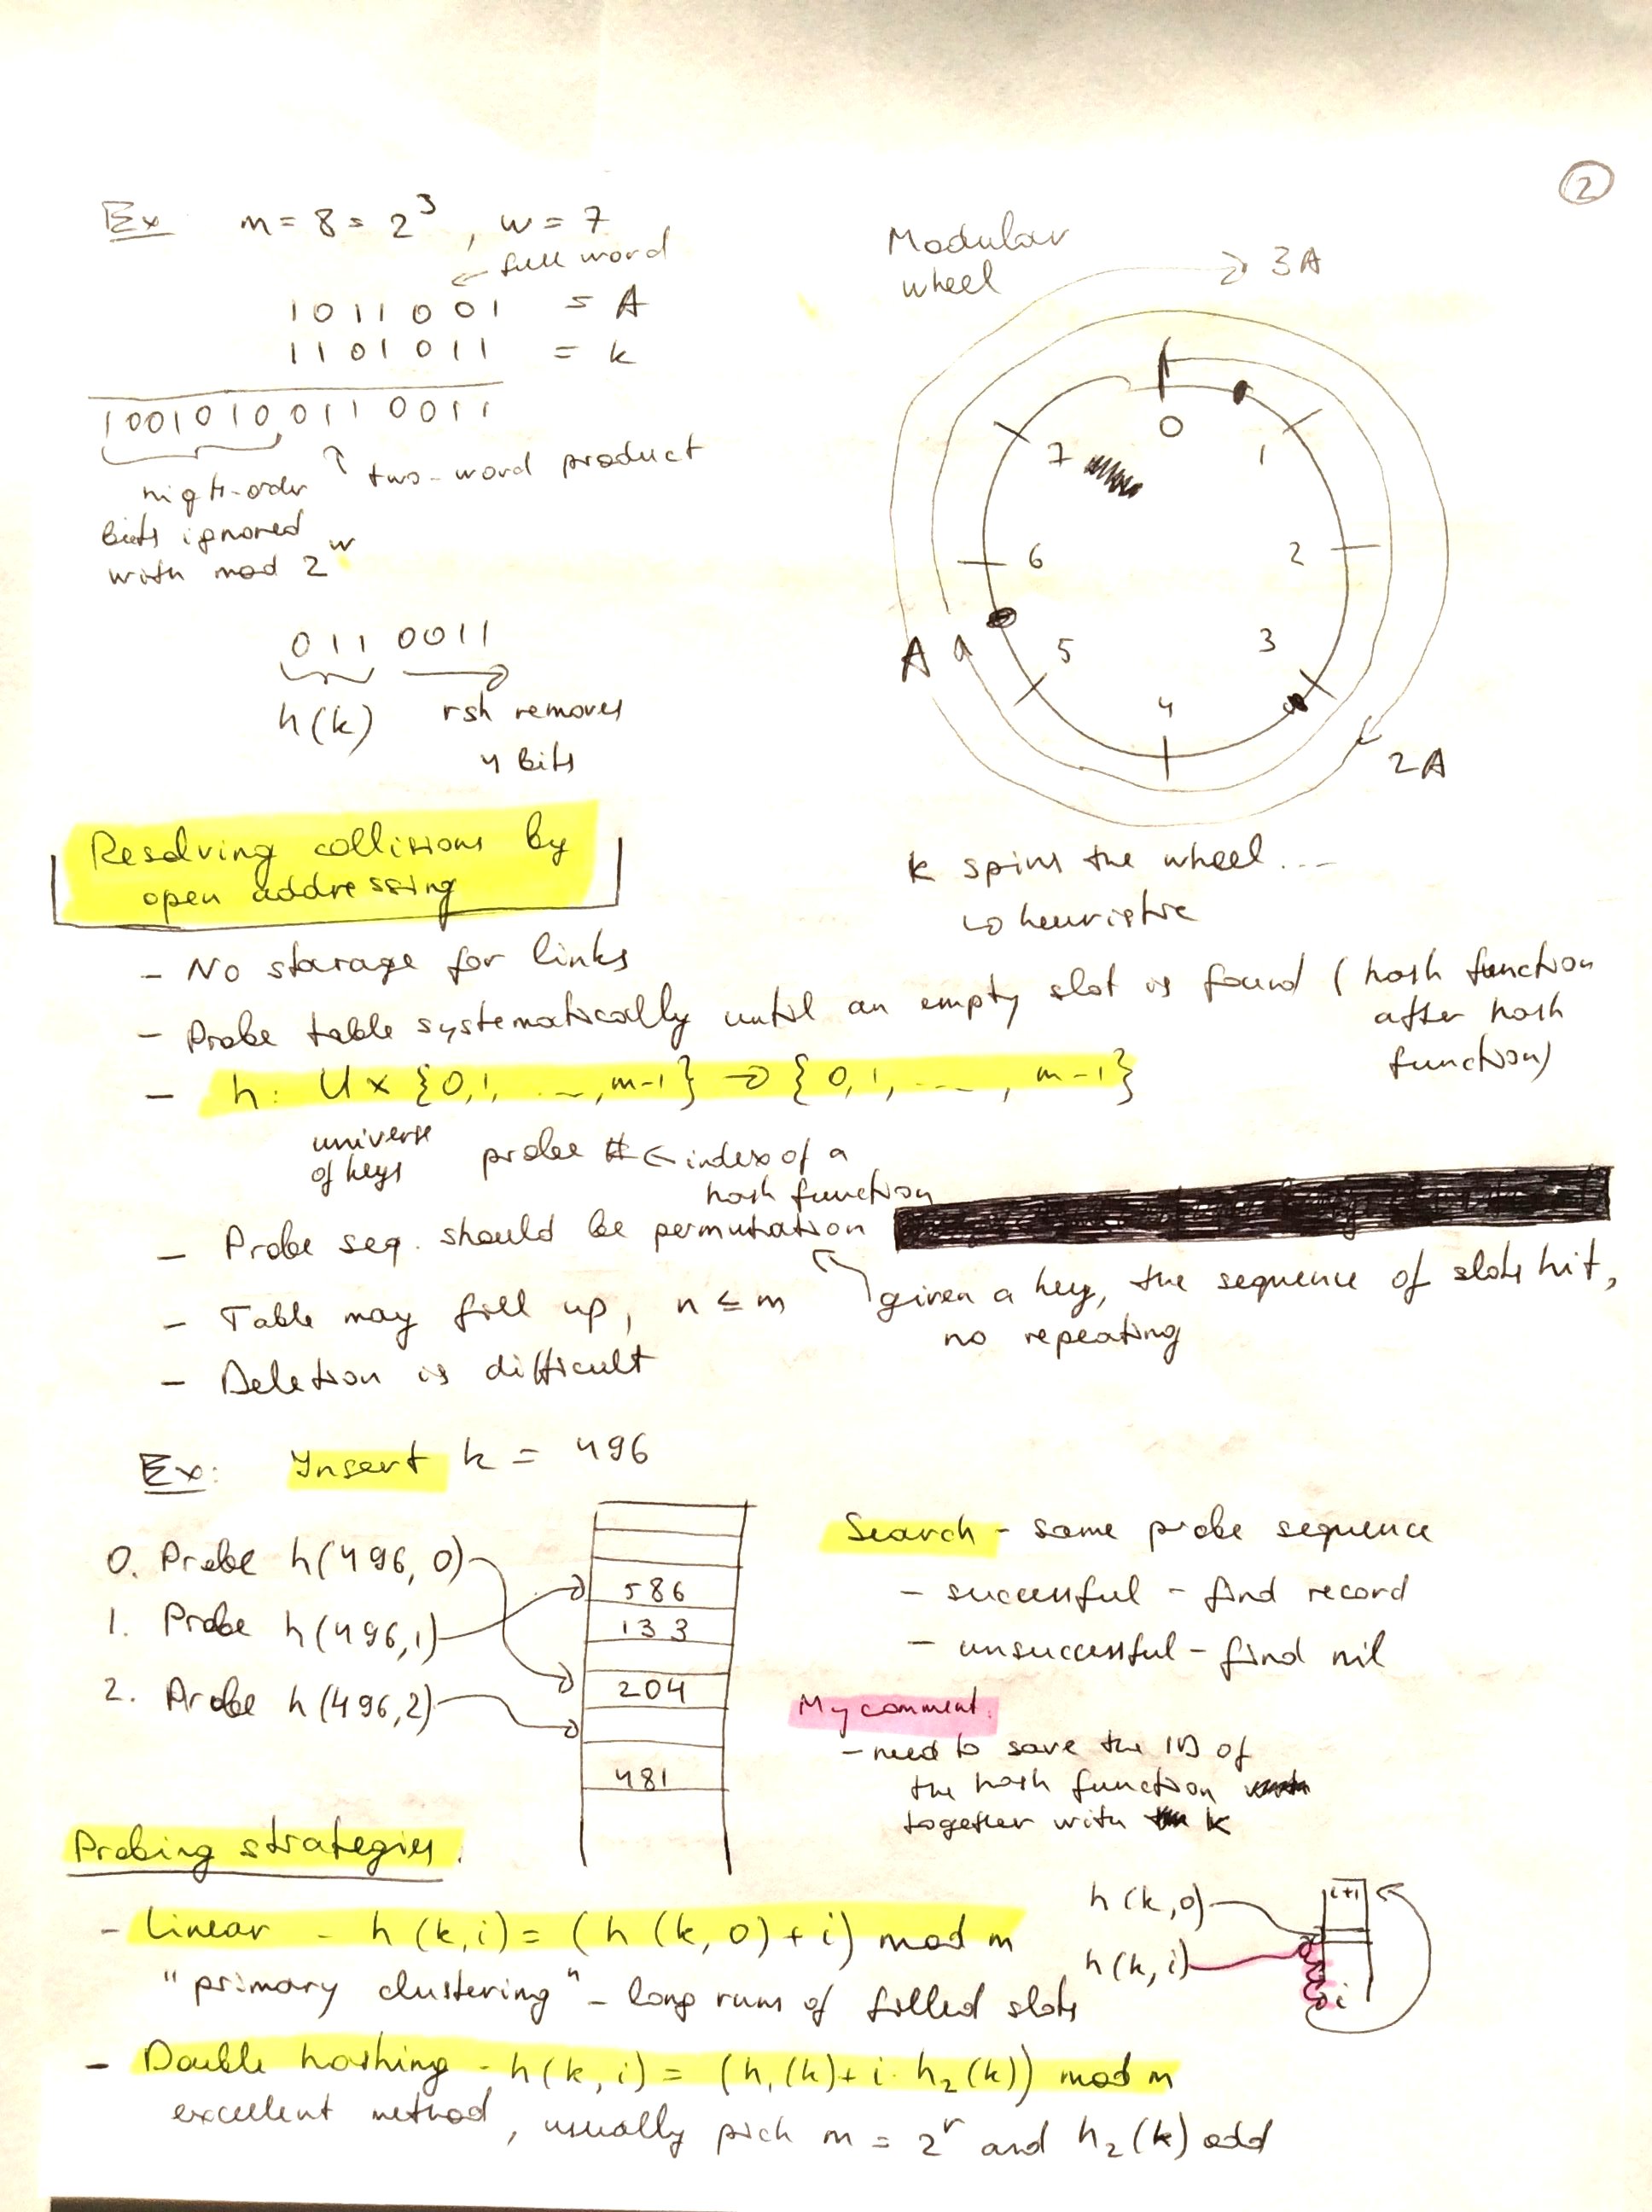 2
Ex m = 8 = 2³, w = 7
← full word
1011001 = A
1101011 = k
10010100110011
high-order
bits ignored
with mod 2^w
two-word product
011 0011
h(k) rsh removes
4 bits
Modular
wheel
3A
0
1
2
3
4
5
6
7
A
2A
k spins the wheel...
↳ heuristic
Resolving collisions by
open addressing
- No storage for links
- Probe table systematically until an empty slot is found (hash function
after hash
function)
- h: U × {0,1, ..., m-1} → {0,1, ..., m-1}
universe
of keys
probe # ← index of a
hash function
- Probe seq. should be permutation
given a key, the sequence of slots hit,
no repeating
- Table may fill up, n ≤ m
- Deletion is difficult
Ex: Insert k = 496
0. Probe h(496, 0)
1. Probe h(496,1)
2. Probe h(496,2)
586
133
204
481
Search - same probe sequence
- successful - find record
- unsuccessful - find nil
My comment:
- need to save the ID of
the hash function
together with k
Probing strategies:
- Linear - h(k,i) = (h(k,0)+i) mod m
"primary clustering" - long runs of filled slots
h(k,0)
h(k,i)
i+1
i
- Double hashing - h(k,i) = (h₁(k)+i·h₂(k)) mod m
excellent method, usually pick m = 2^r and h₂(k) odd